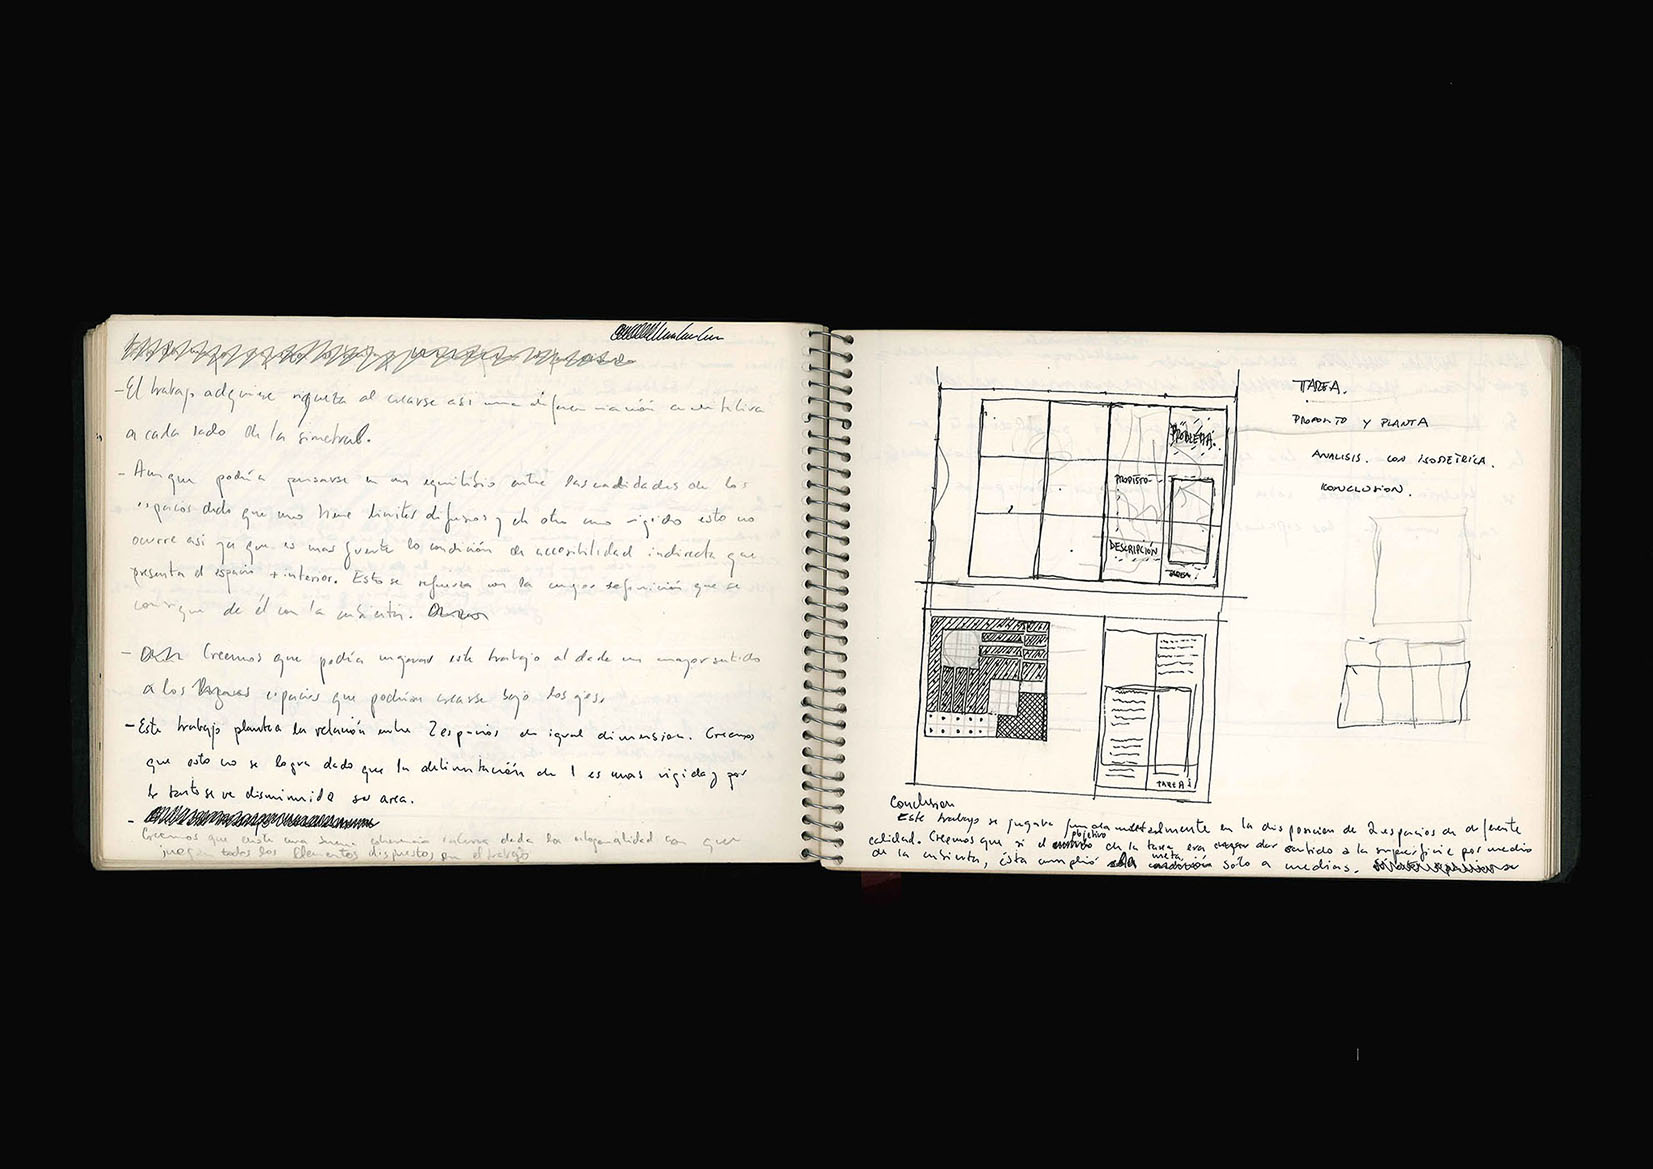 - El trabajo adquiere riqueza al crearse así una diferenciación cualitativa
a cada lado de la simetral.
- Aunque podría pensarse en un equilibrio entre las cualidades de los
espacios dado que uno tiene límites difusos y el otro uno rígido esto no
ocurre así ya que es mas fuerte la condición de accesibilidad indirecta que
presenta el espacio + interior. Esto se refuerza con la mayor definición que se
consigue de él con la cubierta.
- Creemos que podría mejorar este trabajo al darle un mayor sentido
a los espacios que podrían crearse bajo los ejes.
- Este trabajo plantea la relación entre 2 espacios de igual dimension. Creemos
que esto no se logra dado que la delimitación de 1 es mas rigida y por
lo tanto se ve disminuida su area.
-
Creemos que existe una buena coherencia interna dada la ortogonalidad con que
juegan todos los elementos dispuestos por el trabajo
TAREA.
PROPOSITO Y PLANTA
ANALISIS. CON ISOMETRICA.
KONCLUSION.
PROBLEMA.
PROPOSITO
DESCRIPCIÓN
TAREA 1
TAREA 1
Conclusion
Este trabajo se jugaba fundamentalmente en la disposicion de 2 espacios de diferente
calidad. Creemos que si el objetivo de la tarea era dar sentido a la superficie por medio
de la cubierta, ésta cumplió meta solo a medias.